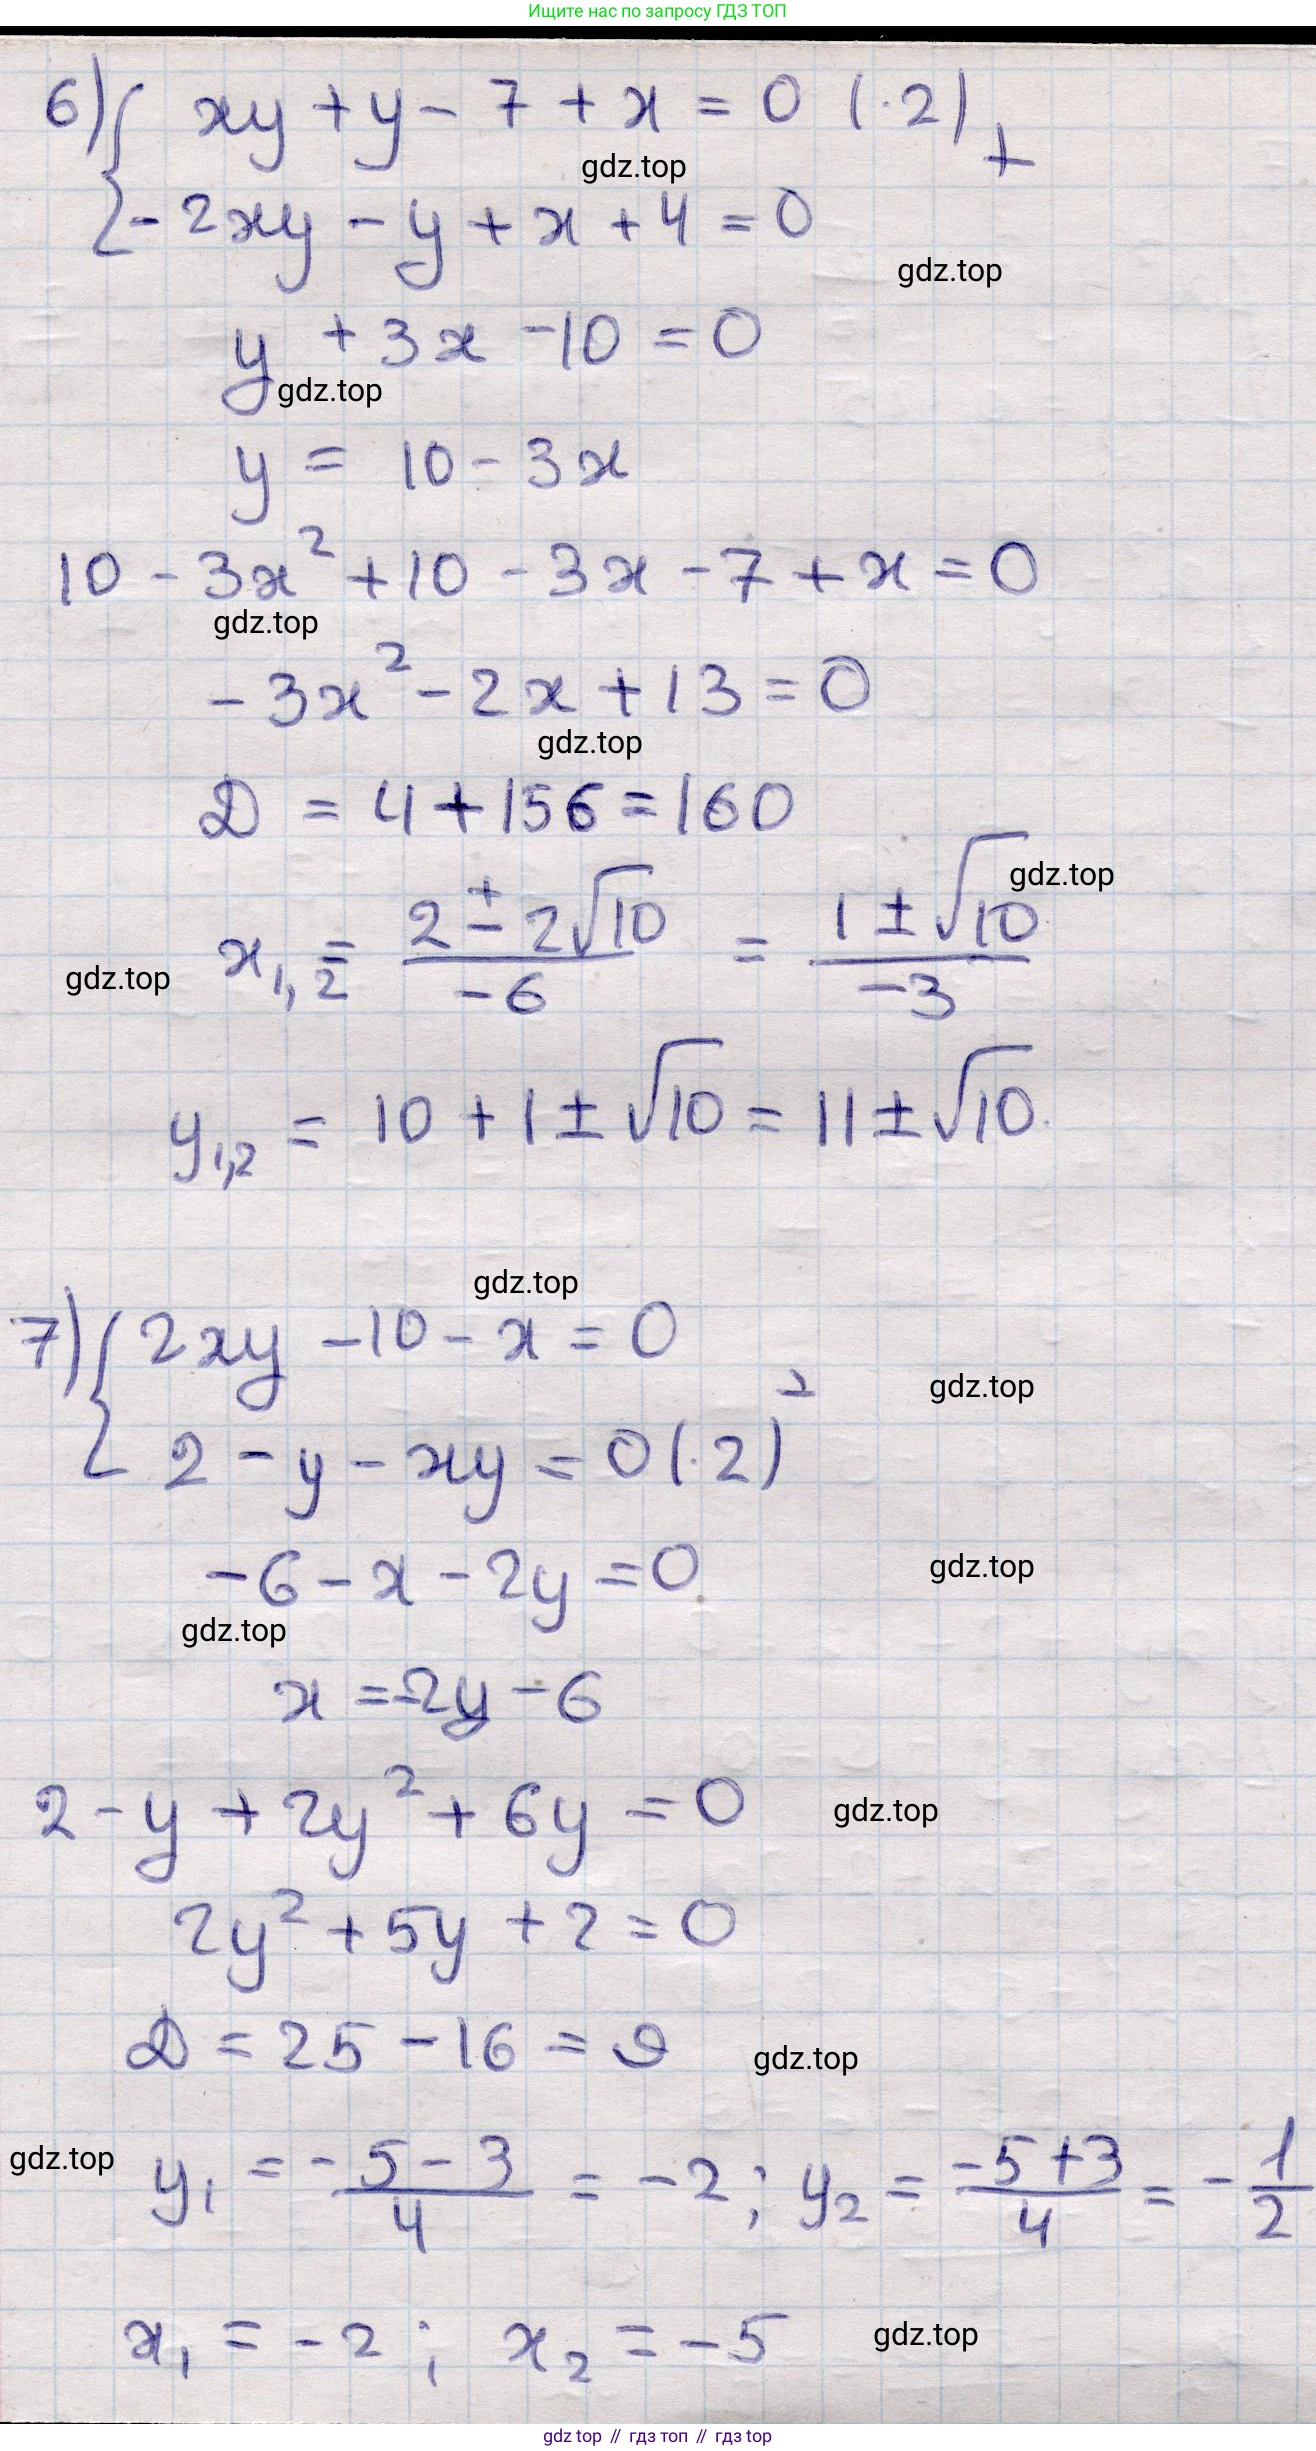 Ищите нас по запросу ГДЗ ТОП
6) { xy + y - 7 + x = 0 (·2) +
gdz.top
- 2xy - y + x + 4 = 0
gdz.top
y + 3x - 10 = 0
gdz.top
y = 10 - 3x
10 - 3x² + 10 - 3x - 7 + x = 0
gdz.top
- 3x² - 2x + 13 = 0
gdz.top
D = 4 + 156 = 160
gdz.top
x₁,₂ = (2 ± 2√10)/(-6) = (1 ± √10)/(-3)
gdz.top
y₁,₂ = 10 + 1 ± √10 = 11 ± √10
gdz.top
7) { 2xy - 10 - x = 0
gdz.top
2 - y - xy = 0 (·2)
-6 - x - 2y = 0
gdz.top
gdz.top
x = -2y - 6
2 - y + 2y² + 6y = 0
gdz.top
2y² + 5y + 2 = 0
D = 25 - 16 = 9
gdz.top
gdz.top
y₁ = (-5 - 3)/4 = -2; y₂ = (-5 + 3)/4 = -1/2
x₁ = -2; x₂ = -5
gdz.top
gdz top // гдз топ // gdz top